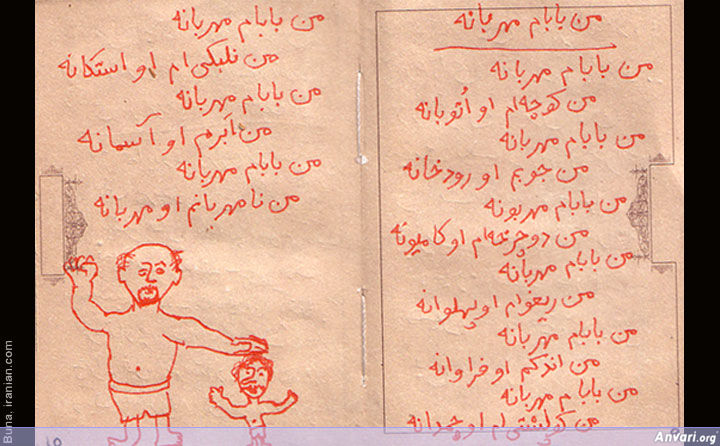 من بابام مهربانه
من بابام مهربانه
من کوچه‌ام او اُتوبانه
من بابام مهربانه
من جویم او رودخانه
من بابام مهربونه
من دوچرخه‌ام او کامیونه
من بابام مهربانه
من ریغوام او پهلوانه
من بابام مهربانه
من اندکم او فراوانه
من بابام مهربانه
من کولپشتی‌ام او چمدانه
من بابام مهربانه
من نلبکی‌ام او استکانه
من بابام مهربانه
من ابرم او آسمانه
من بابام مهربانه
من نامهربانم او مهربانه
Buna, iranian.com
Anvari.org